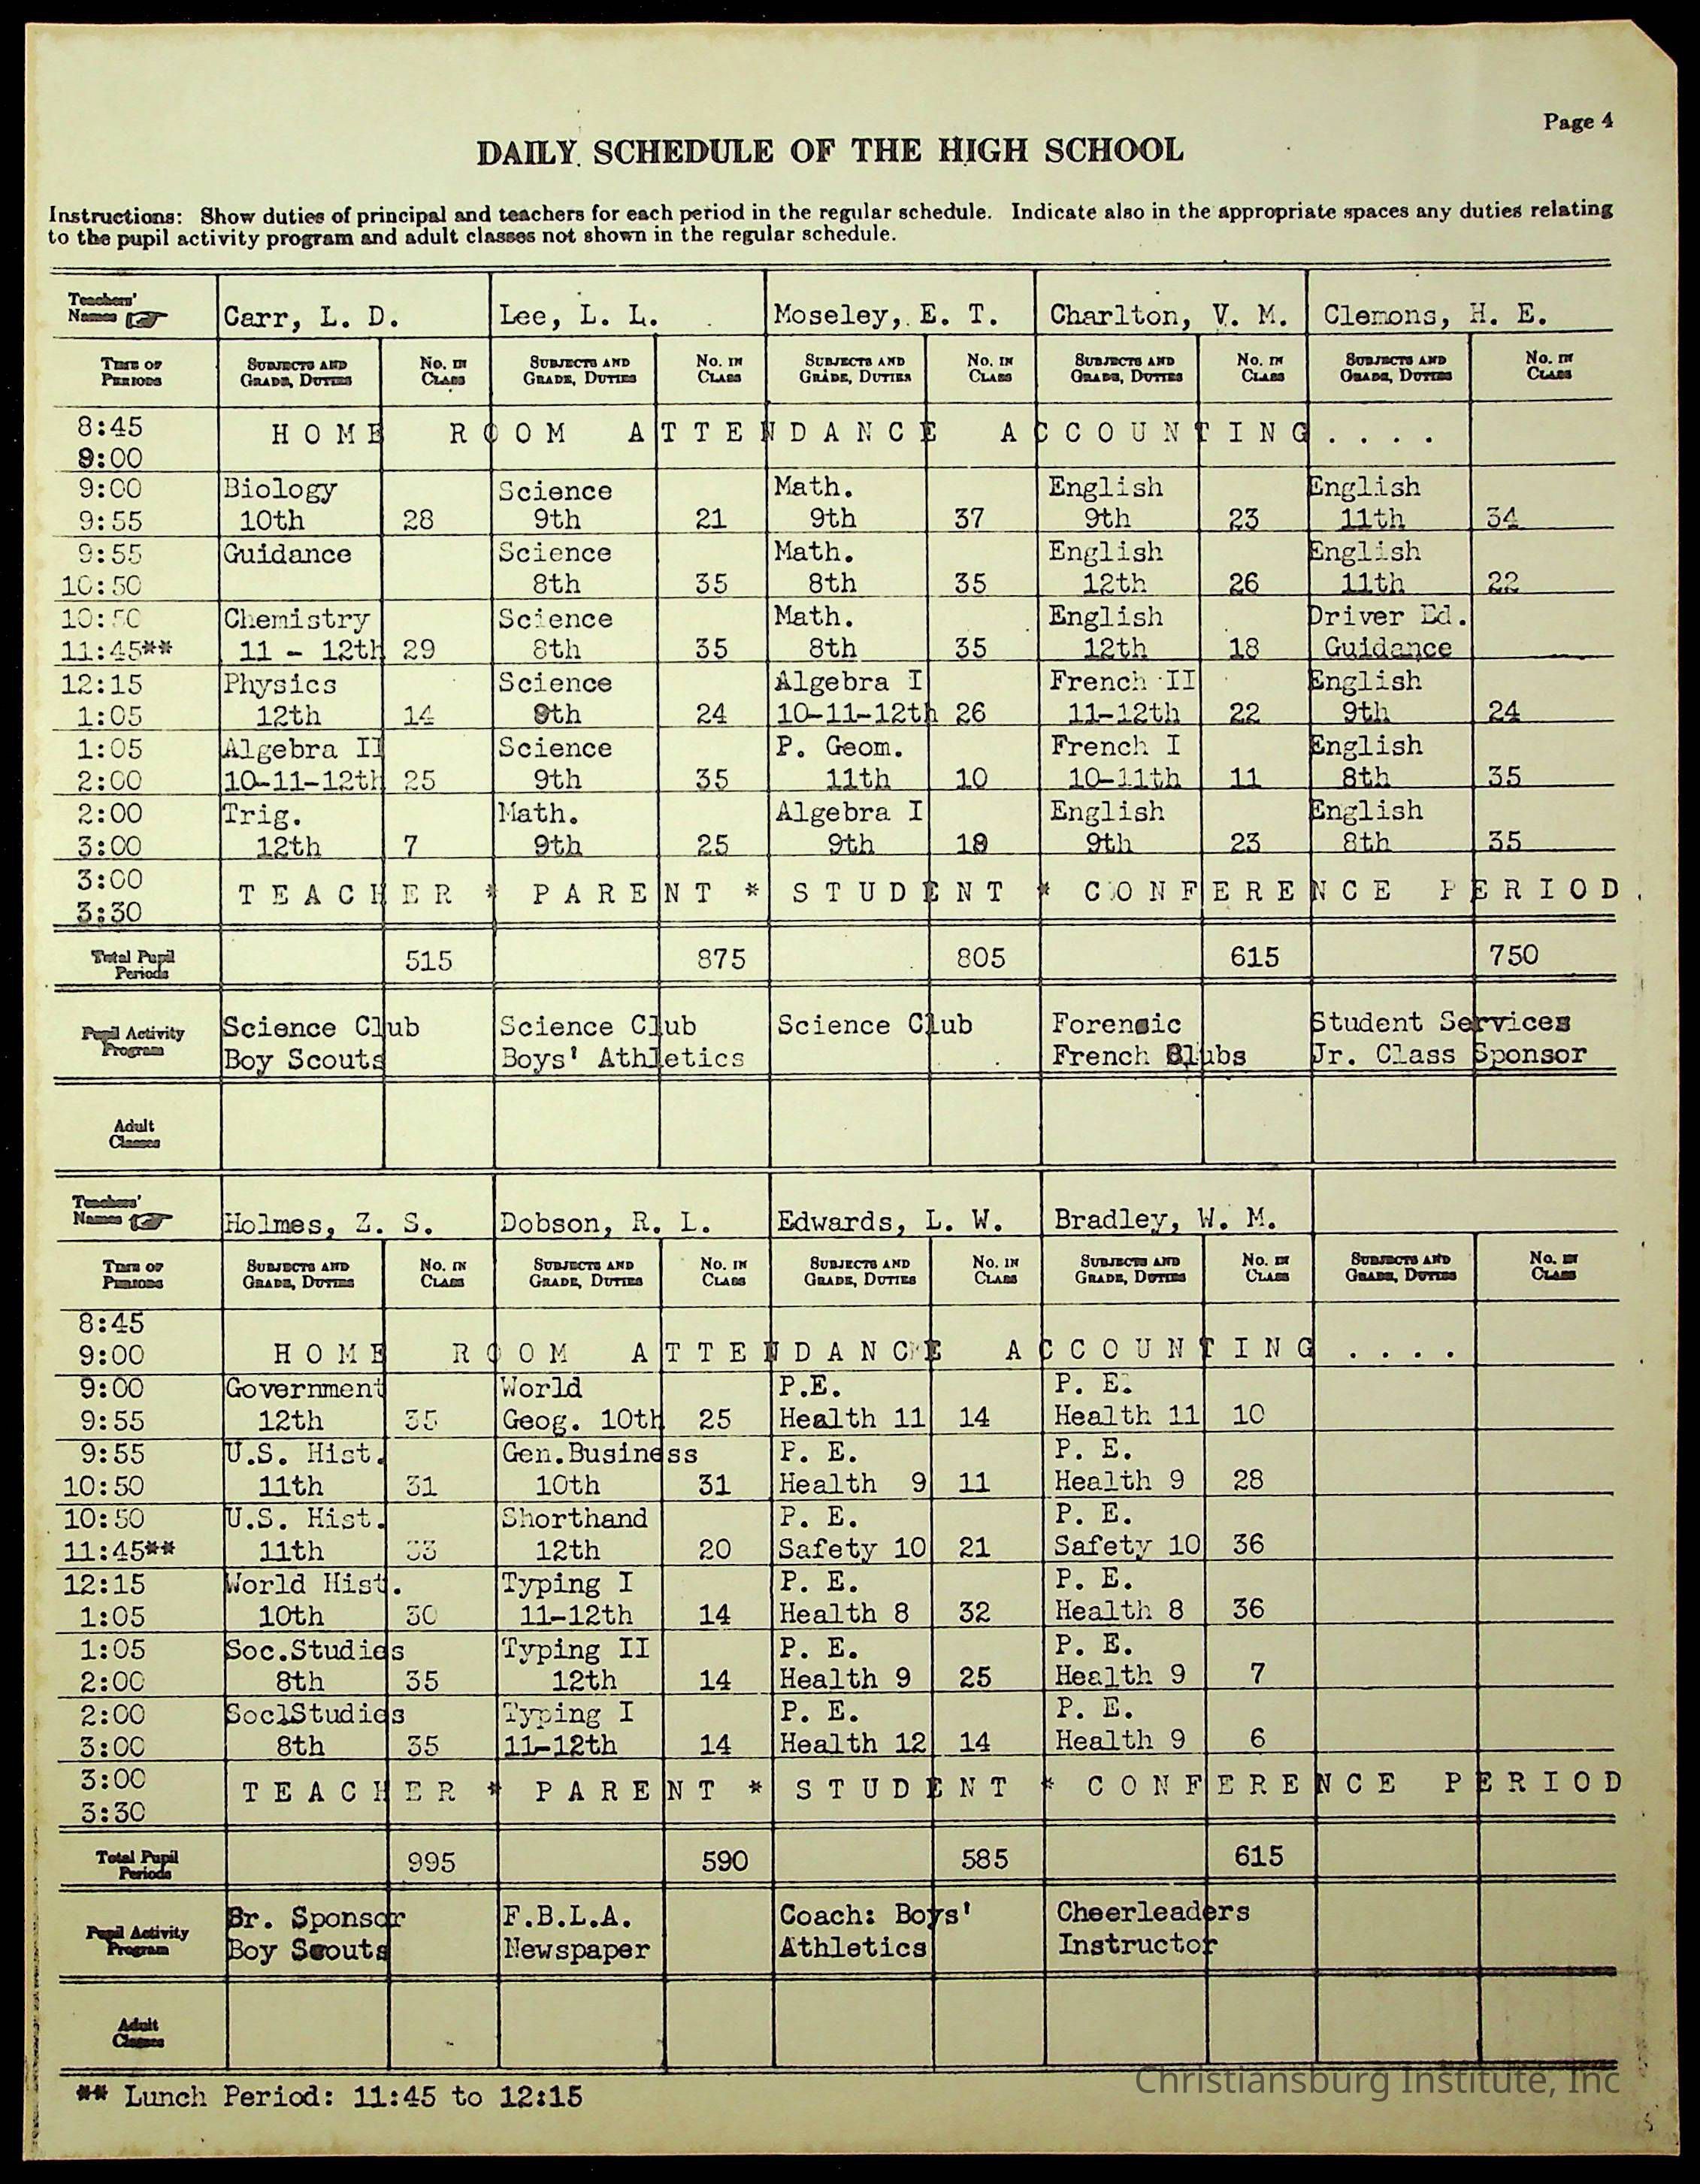 Page 4
DAILY SCHEDULE OF THE HIGH SCHOOL
Instructions: Show duties of principal and teachers for each period in the regular schedule. Indicate also in the appropriate spaces any duties relating
to the pupil activity program and adult classes not shown in the regular schedule.
Teachers' Names Carr, L. D. Lee, L. L. Moseley, E. T. Charlton, V. M. Clemons, H. E.
TIME OF SUBJECTS AND NO. IN SUBJECTS AND NO. IN SUBJECTS AND NO. IN SUBJECTS AND NO. IN SUBJECTS AND NO. IN
PERIODS GRADE, DUTIES CLASS GRADE, DUTIES CLASS GRADE, DUTIES CLASS GRADE, DUTIES CLASS GRADE, DUTIES CLASS
8:45 HOME ROOM ATTENDANCE ACCOUNTING....
9:00
9:00 Biology Science Math. English English
9:55 10th 28 9th 21 9th 37 9th 23 11th 34
9:55 Guidance Science Math. English English
10:50 8th 35 8th 35 12th 26 11th 22
10:50 Chemistry Science Math. English Driver Ed.
11:45** 11 - 12th 29 8th 35 8th 35 12th 18 Guidance
12:15 Physics Science Algebra I French II English
1:05 12th 14 9th 24 10-11-12th 26 11-12th 22 9th 24
1:05 Algebra II Science P. Geom. French I English
2:00 10-11-12th 25 9th 35 11th 10 10-11th 11 8th 35
2:00 Trig. Math. Algebra I English English
3:00 12th 7 9th 25 9th 18 9th 23 8th 35
3:00 TEACHER * PARENT * STUDENT * CONFERENCE PERIOD.
3:30
Total Pupil Periods 515 875 805 615 750
Pupil Activity Science Club Science Club Science Club Forensic Student Services
Program Boy Scouts Boys' Athletics French Clubs Jr. Class Sponsor
Adult
Classes
Teachers' Names Holmes, Z. S. Dobson, R. L. Edwards, L. W. Bradley, W. M.
TIME OF SUBJECTS AND NO. IN SUBJECTS AND NO. IN SUBJECTS AND NO. IN SUBJECTS AND NO. IN SUBJECTS AND NO. IN
PERIODS GRADE, DUTIES CLASS GRADE, DUTIES CLASS GRADE, DUTIES CLASS GRADE, DUTIES CLASS GRADE, DUTIES CLASS
8:45
9:00 HOME ROOM ATTENDANCE ACCOUNTING....
9:00 Government World P.E. P. E.
9:55 12th 35 Geog. 10th 25 Health 11 14 Health 11 10
9:55 U.S. Hist. Gen.Business P. E. P. E.
10:50 11th 31 10th 31 Health 9 11 Health 9 28
10:50 U.S. Hist. Shorthand P. E. P. E.
11:45** 11th 33 12th 20 Safety 10 21 Safety 10 36
12:15 World Hist. Typing I P. E. P. E.
1:05 10th 30 11-12th 14 Health 8 32 Health 8 36
1:05 Soc.Studies Typing II P. E. P. E.
2:00 8th 35 12th 14 Health 9 25 Health 9 7
2:00 SoclStudies Typing I P. E. P. E.
3:00 8th 35 11-12th 14 Health 12 14 Health 9 6
3:00 TEACHER * PARENT * STUDENT * CONFERENCE PERIOD
3:30
Total Pupil Periods 995 590 585 615
Pupil Activity Sr. Sponsor F.B.L.A. Coach: Boys' Cheerleaders
Program Boy Scouts Newspaper Athletics Instructor
Adult
Classes
** Lunch Period: 11:45 to 12:15
Christiansburg Institute, Inc